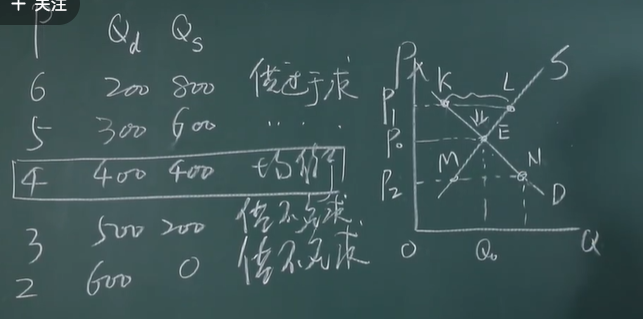 + 关注
P Qd Qs
6 200 800 供过于求
5 300 600 ....
4 400 400 均衡
3 500 200 供不应求
2 600 0 供不应求
P K L S
P1
P0 E
P2 M N D
O Q0 Q